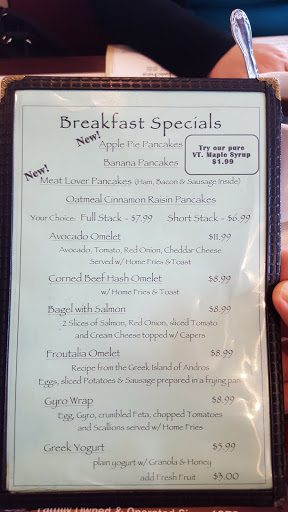 Breakfast Specials
New!
Apple Pie Pancakes
Banana Pancakes
Try our pure
VT. Maple Syrup
$1.99
New!
Meat Lover Pancakes (Ham, Bacon & Sausage Inside)
Oatmeal Cinnamon Raisin Pancakes
Your Choice: Full Stack - $7.99 Short Stack - $6.99
Avocado Omelet $11.99
Avocado, Tomato, Red Onion, Cheddar Cheese
Served w/ Home Fries & Toast
Corned Beef Hash Omelet $8.99
w/ Home Fries & Toast
Bagel with Salmon $8.99
2 Slices of Salmon, Red Onion, sliced Tomato
and Cream Cheese topped w/ Capers
Froutalia Omelet $8.99
Recipe from the Greek Island of Andros
Eggs, sliced Potatoes & Sausage prepared in a frying pan
Gyro Wrap $8.99
Egg, Gyro, crumbled Feta, chopped Tomatoes
and Scallions served w/ Home Fries
Greek Yogurt $5.99
plain yogurt w/ Granola & Honey
add Fresh Fruit $3.00
Family Owned & Operated